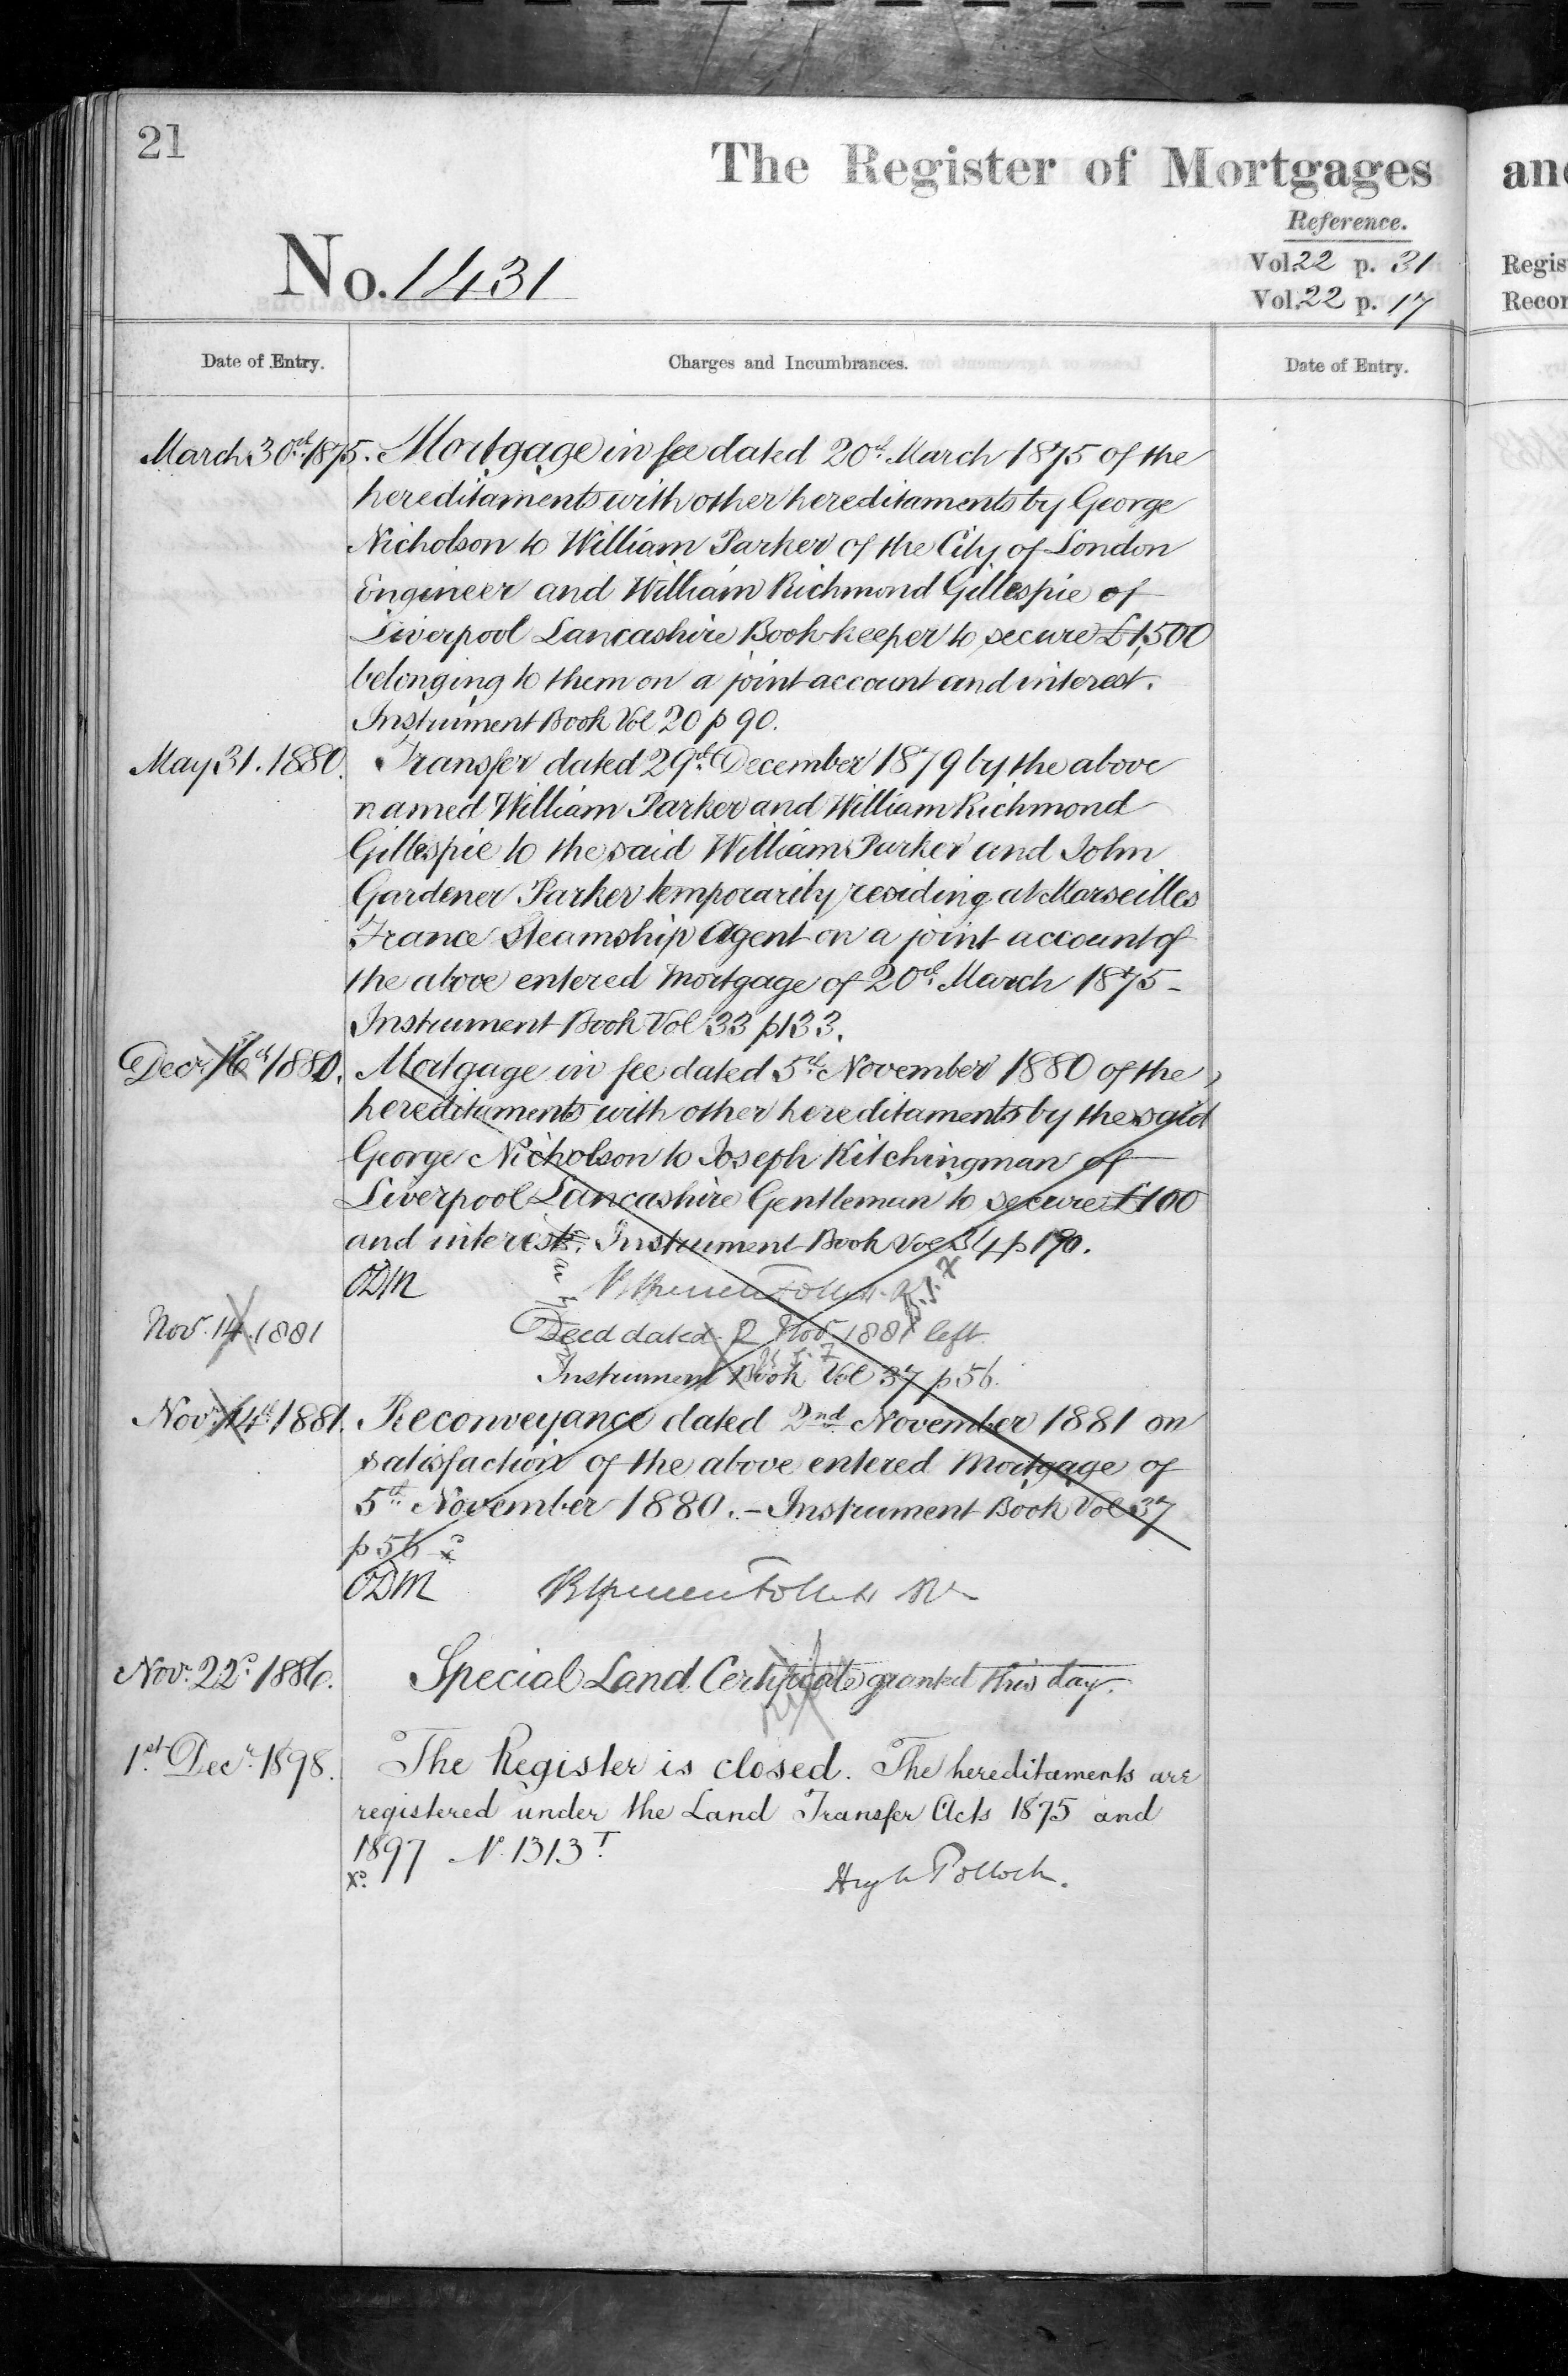 21
The Register of Mortgages
Reference.
No. 1431
Vol. 22 p. 31
Vol. 22 p. 17
Date of Entry.
Charges and Incumbrances.
Date of Entry.
March 30th 1875. Mortgage in fee dated 20th March 1875 of the
hereditaments with other hereditaments by George
Nicholson to William Parker of the City of London
Engineer and William Richmond Gillespie of
Liverpool Lancashire Book-keeper to secure £1,500
belonging to them on a joint account and interest.
Instrument Book Vol 20 p 90.
May 31. 1880. Transfer dated 29th December 1879 by the above
named William Parker and William Richmond
Gillespie to the said William Parker and John
Gardener Parker temporarily residing at Marseilles
France Steamship Agent on a joint account of
the above entered Mortgage of 20th March 1875 -
Instrument Book Vol 33 p 133.
Decr. 16th 1880. Mortgage in fee dated 5th November 1880 of the
hereditaments with other hereditaments by the said
George Nicholson to Joseph Kitchingman of
Liverpool Lancashire Gentleman to secure £100
and interest. Instrument Book Vol 34 p 190.
ODM
Nov. 14. 1881 Deed dated 2 Nov. 1881 left.
Instrument Book Vol 37 p 56.
Novr. 14th 1881. Reconveyance dated 2nd November 1881 on
satisfaction of the above entered Mortgage of
5th November 1880. - Instrument Book Vol 37
p 56
ODM
Nov. 22d 1886. Special Land Certificate granted this day.
1st Decr. 1898. The Register is closed. The hereditaments are
registered under the Land Transfer Acts 1875 and
1897 No. 1313 T
Hugh Pollock.
and
Regis
Recor